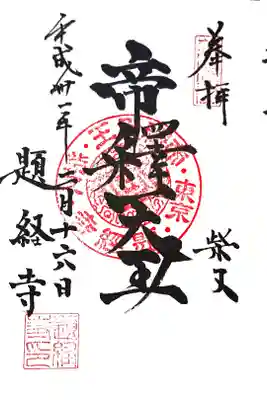 奉拝
柴又
帝釋天王
平成卅一年二月十六日
題経寺